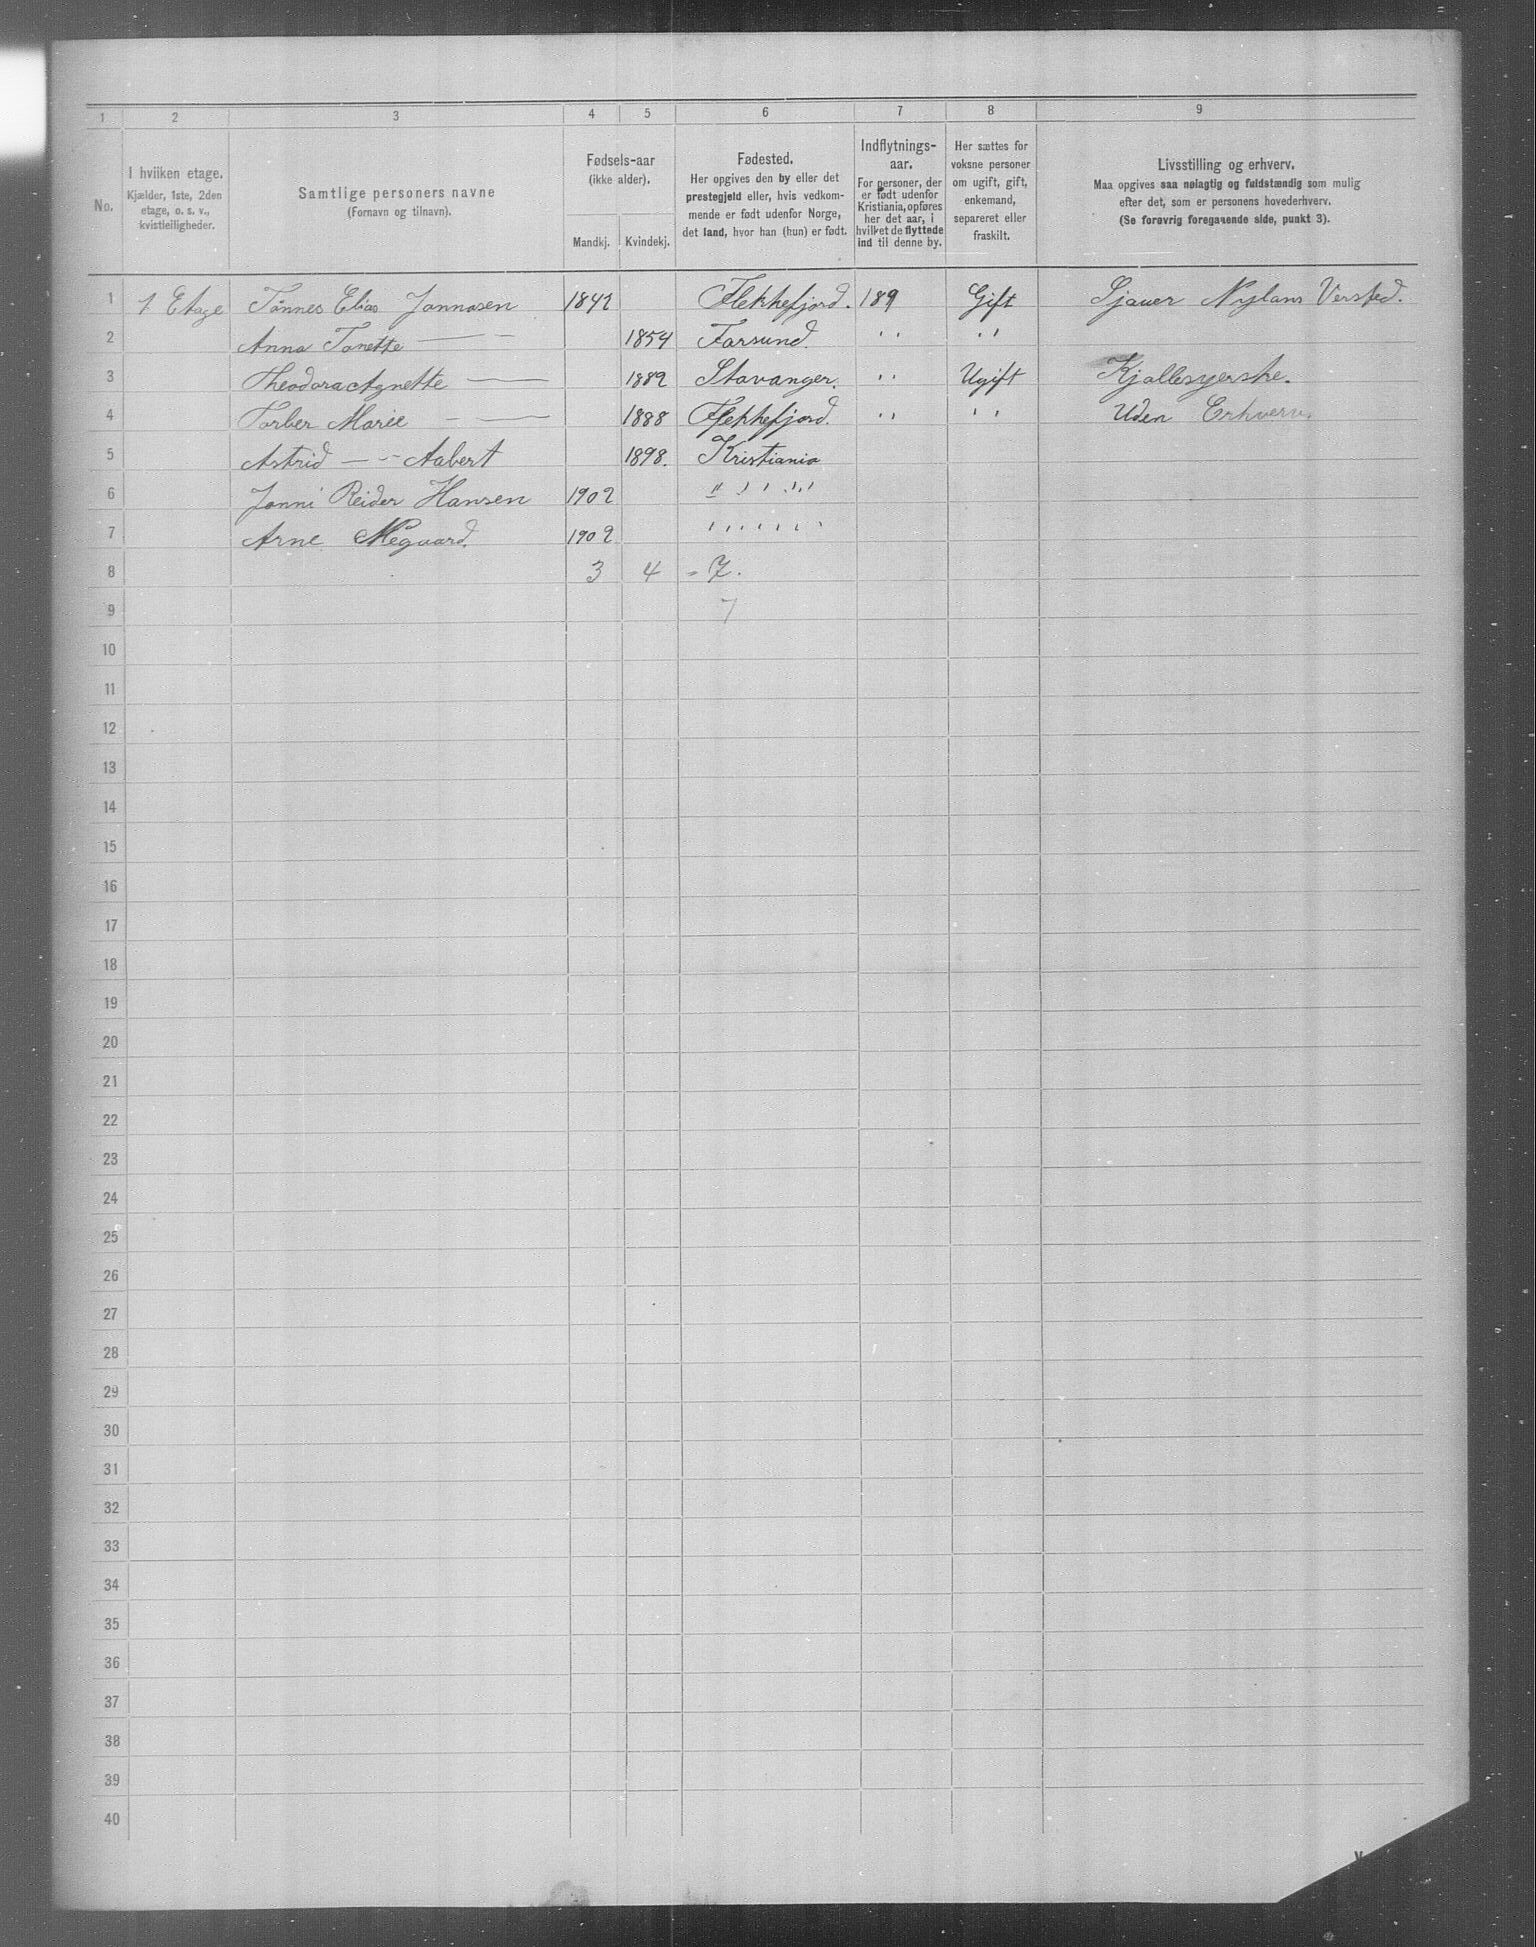 1 2 3 4 5 6 7 8 9
No.
I hvilken etage.
Kjælder, 1ste, 2den
etage, o. s. v.,
kvistleiligheder.
Samtlige personers navne
(Fornavn og tilnavn).
Fødsels-aar
(ikke alder).
Mandkj. Kvindekj.
Fødested.
Her opgives den by eller det
prestegjeld eller, hvis vedkom-
mende er født udenfor Norge,
det land, hvor han (hun) er født.
Indflytnings-
aar.
For personer, der
er født udenfor
Kristiania, opføres
her det aar, i
hvilket de flyttede
ind til denne by.
Her sættes for
voksne personer
om ugift, gift,
enkemand,
separeret eller
fraskilt.
Livsstilling og erhverv.
Maa opgives saa nøiagtig og fuldstændig som mulig
efter det, som er personens hovederhverv.
(Se forøvrig foregaaende side, punkt 3).
1 1 Etage Tønnes Elias Jonnasen 1842 Flekkefjord. 189 Gift Sjauer Nylans Versted.
2 Anna Tonette — " — 1854 Farsund. " "
3 Theodora Agnette — 1882 Stavanger. " Ugift Kjollesyerske.
4 Torber Marie — 1888 Flekkefjord. " " Uden Erhverv.
5 Astrid — " — Aabert 1898. Kristiania
6 Jonni Reider Hansen 1902 " " " "
7 Arne Megaard. 1902 " " " "
8 3 4 = 7.
9 7
10
11
12
13
14
15
16
17
18
19
20
21
22
23
24
25
26
27
28
29
30
31
32
33
34
35
36
37
38
39
40
V